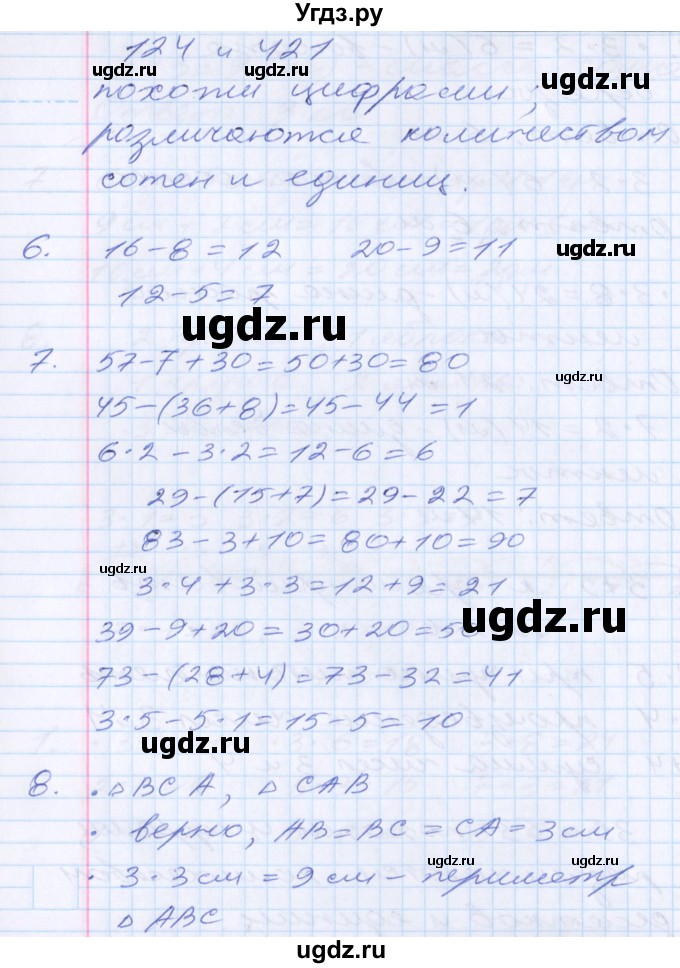 Угдз.ру
124 и 421
ugdz.ru ugdz.ru
похожи цифрами;
ugdz.ru
различаются количеством
сотен и единиц.
6. 16-8=12 20-9=11
ugdz.ru
12-5=7
ugdz.ru
7. 57-7+30=50+30=80
ugdz.ru
45-(36+8)=45-44=1
6·2-3·2=12-6=6
29-(15+7)=29-22=7
83-3+10=80+10=90
ugdz.ru
3·4+3·3=12+9=21
ugdz.ru
39-9+20=30+20=50
73-(28+4)=73-32=41
3·5-5·1=15-5=10
ugdz.ru
8. · △BCA, △CAB
· верно, AB=BC=CA=3см
ugdz.ru ugdz.ru
· 3·3см=9см- периметр
△ABC
ugdz.ru
ugdz.ru